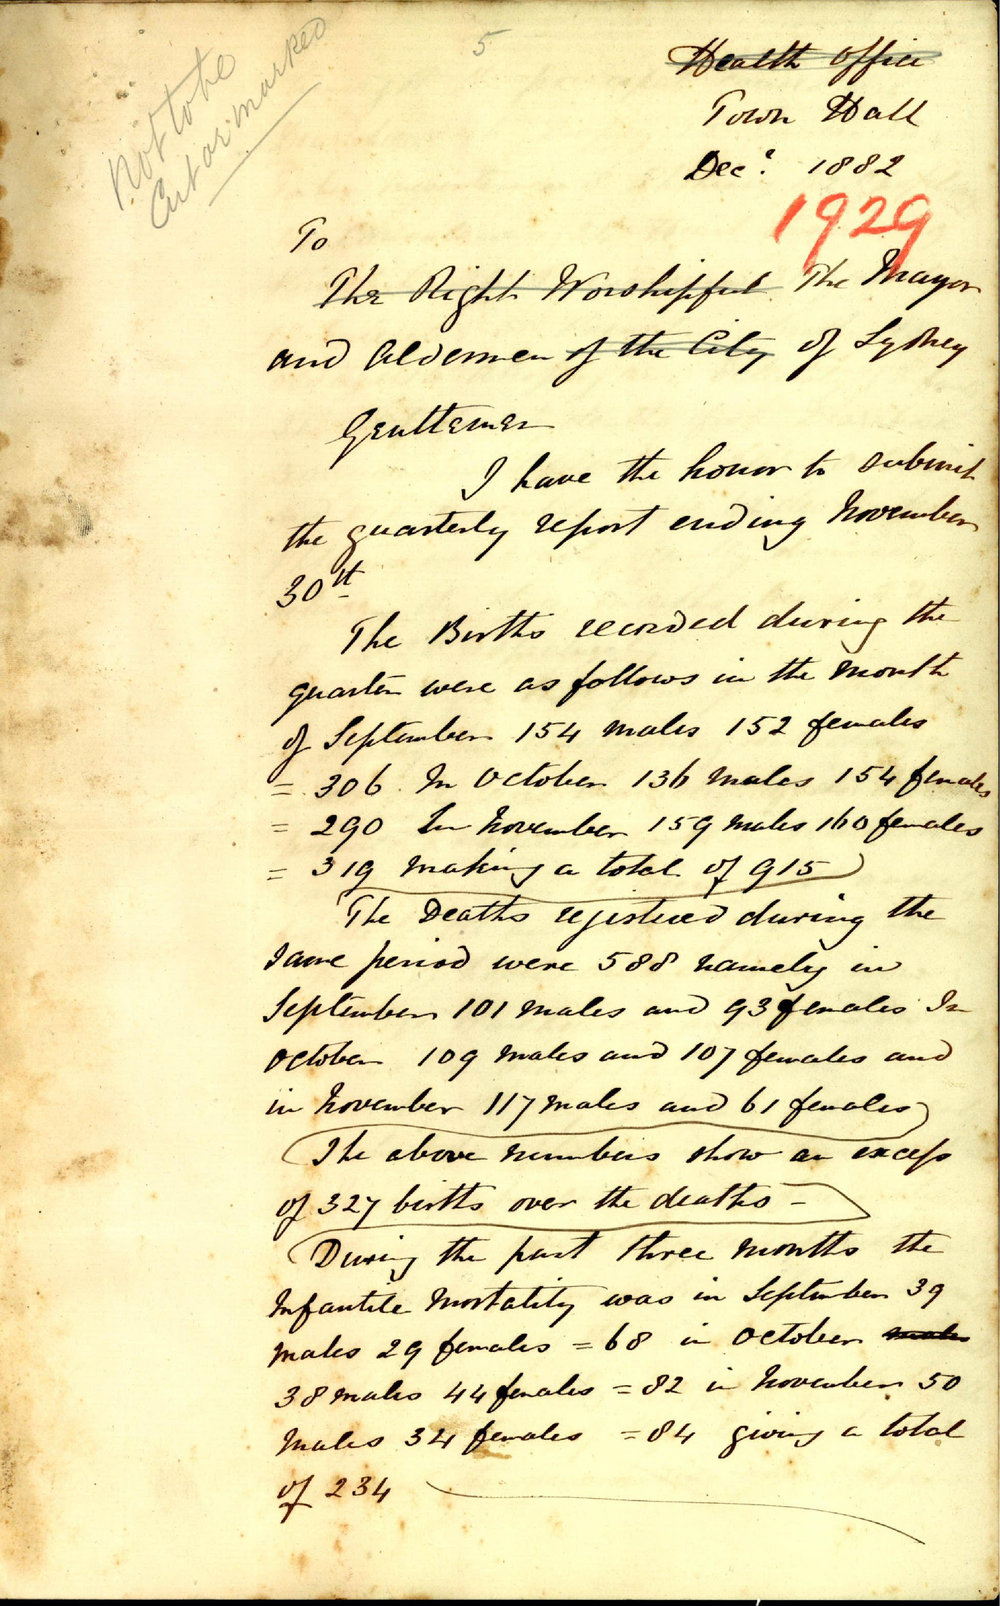 Not to be
Cut or marked
5
Health Office
Town Hall
Decr 1882
1929
To
The Right Worshipful The Mayor
and Aldermen of the City of Sydney
Gentlemen
I have the honor to submit
the quarterly report ending November
30th
The Births recorded during the
quarter were as follows in the month
of September 154 males 152 females
= 306 In October 136 males 154 females
= 290 In November 159 males 160 females
= 319 making a total of 915
The Deaths registered during the
same period were 588 namely in
September 101 males and 93 females In
October 109 males and 107 females and
in November 117 males and 61 females
The above numbers show an excess
of 327 births over the deaths -
During the past three months the
Infantile Mortality was in September 39
males 29 females = 68 in October males
38 males 44 females = 82 in November 50
males 34 females = 84 giving a total
of 234